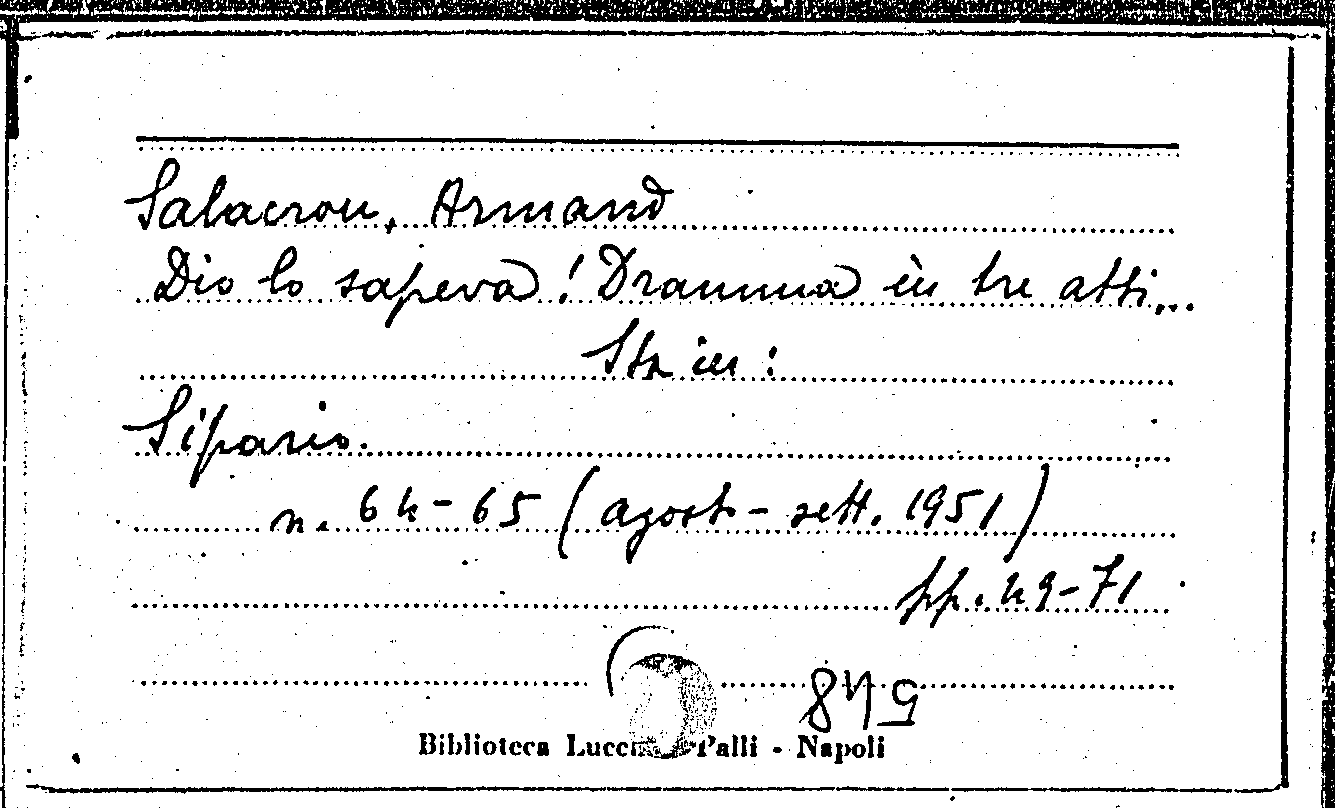 Salacrou, Armand
Dio lo sapeva! Dramma in tre atti...
Sta in:
Sipario.
n. 64-65 (agosto - sett. 1951)
pp. 49-71
548
Biblioteca Lucchesi Palli - Napoli